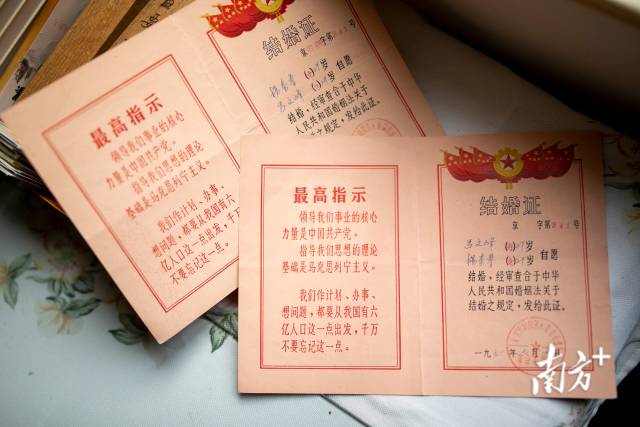 最高指示
领导我们事业的核心
力量是中国共产党。
指导我们思想的理论
基础是马克思列宁主义。
我们作计划、办事、
想问题，都要从我国有六
亿人口这一点出发，千万
不要忘记这一点。
结婚证
京 字第 号
岁
岁 自愿
结婚，经审查合于中华
人民共和国婚姻法关于
结婚之规定，发给此证。
最高指示
领导我们事业的核心
力量是中国共产党。
指导我们思想的理论
基础是马克思列宁主义。
我们作计划、办事、
想问题，都要从我国有六
亿人口这一点出发，千万
不要忘记这一点。
结婚证
京 字第 号
岁
岁 自愿
结婚，经审查合于中华
人民共和国婚姻法关于
结婚之规定，发给此证。
一九 年 月
南方+